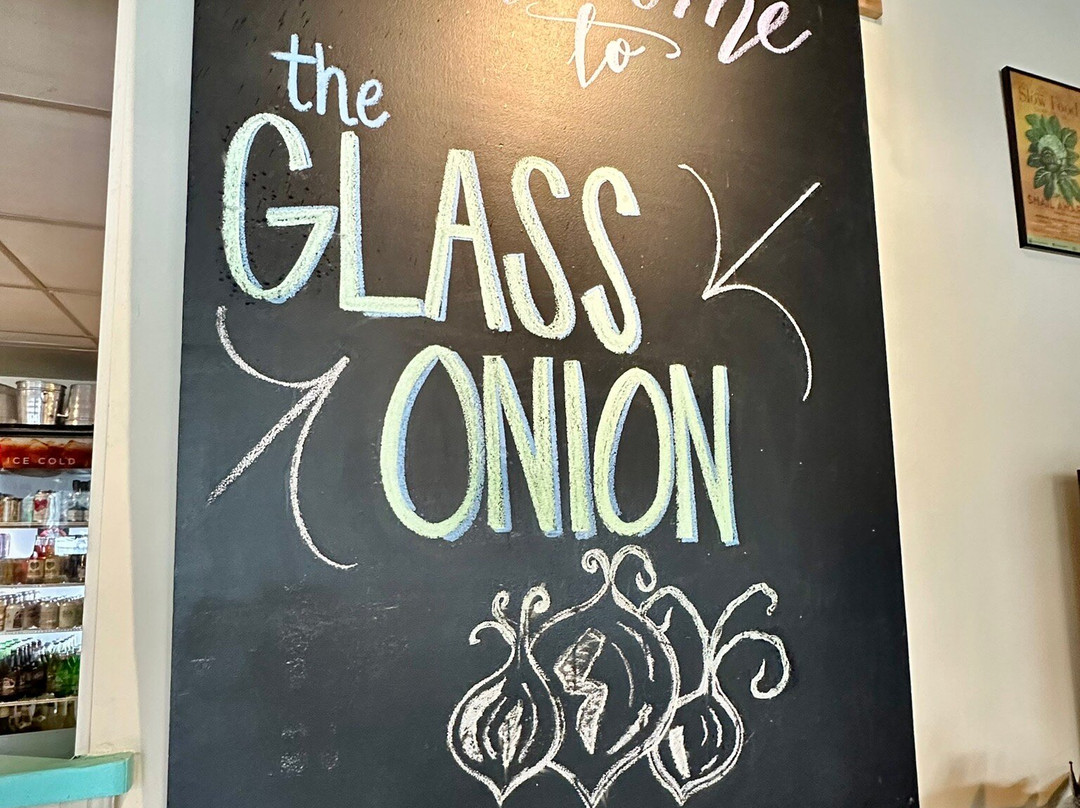 to
the
GLASS
ONION
ICE COLD
Slow Food